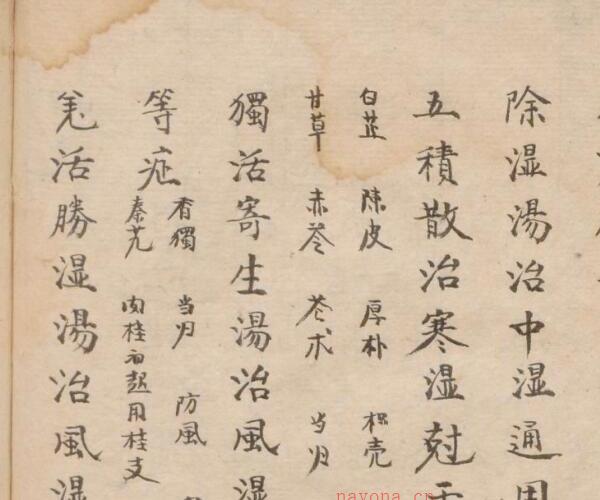 除湿湯治中湿通用
五積散治寒湿尅于
白芷 陳皮 厚朴 枳壳
甘草 赤苓 苍术 当归
獨活寄生湯治風湿
等症
有獨 当归 防風
秦艽 肉桂 起用桂支
羌活勝湿湯治風湿
nayona.cn